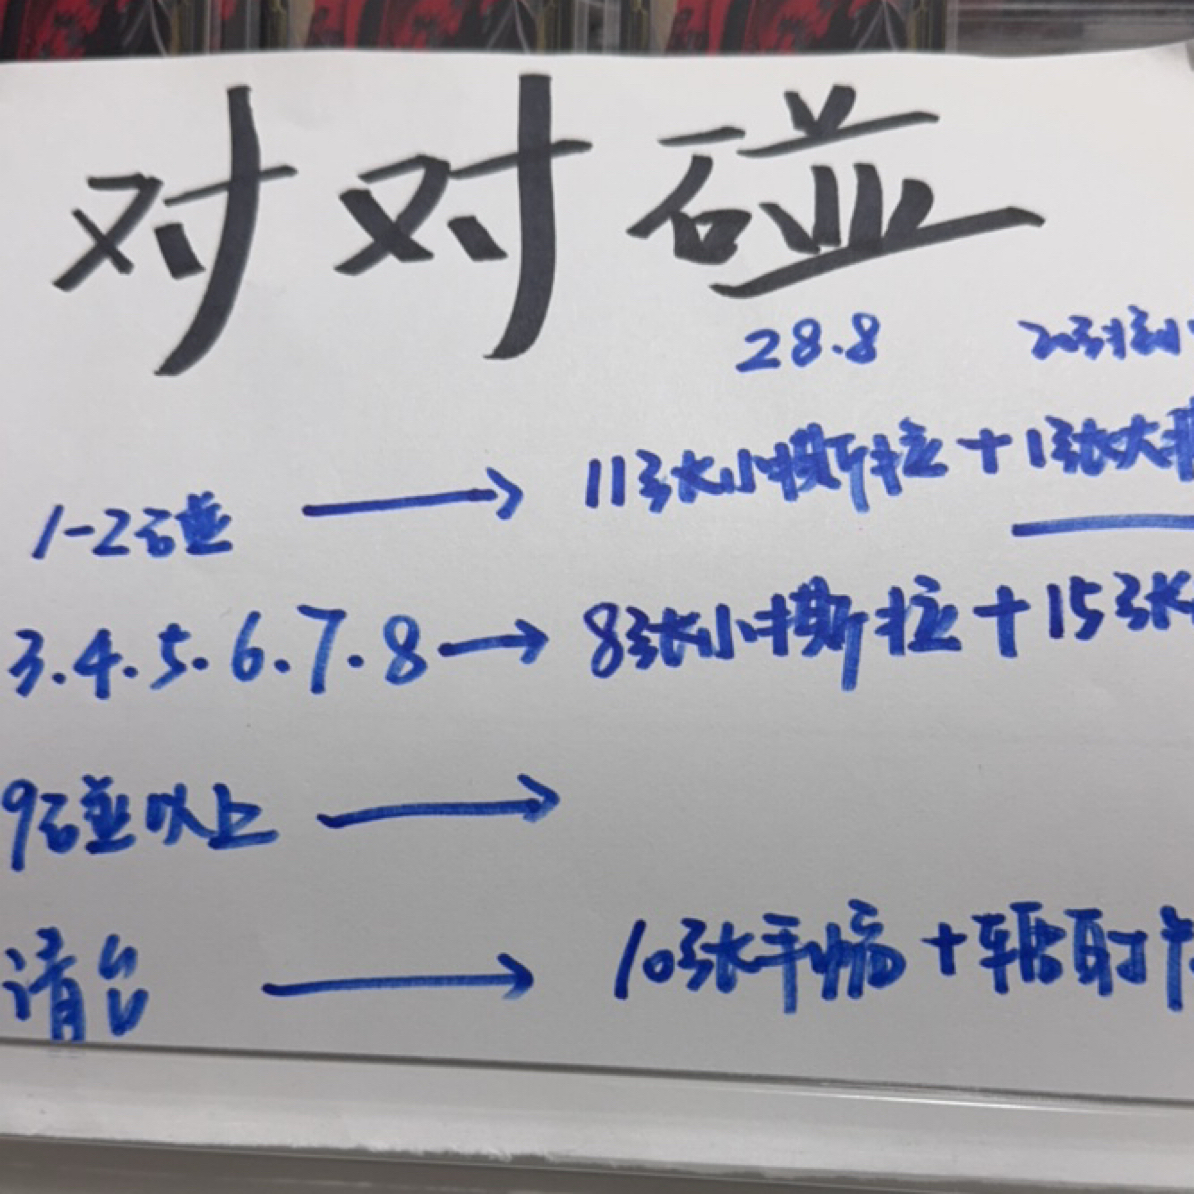 对对碰
28.8 20张小
1-2碰 → 11张小撕拉+1张大
3.4.5.6.7.8 → 8张小撕拉+15张
9碰以上 →
清台 → 10张手幅+辐射卡